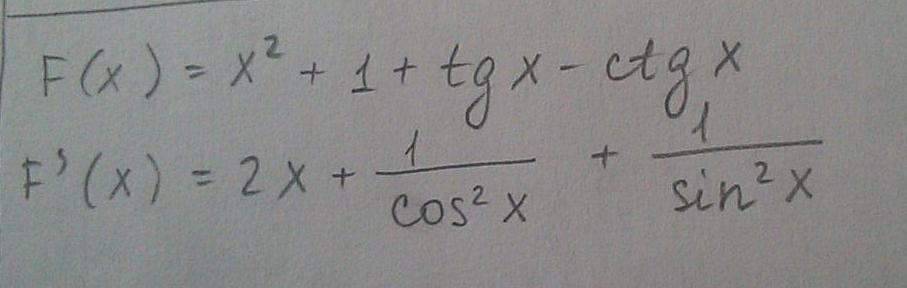 F(x) = x² + 1 + tg x - ctg x
F'(x) = 2x + 1/cos² x + 1/sin² x